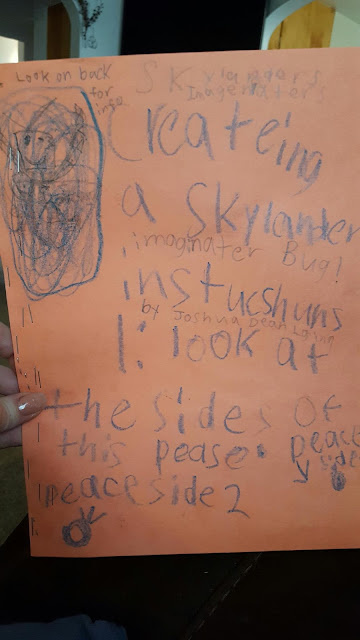 Look on back
for
info.
Skylanders
Imagenaters
Createing
a Skylander
imaginater Bug!
instucshuns
by Joshua Dean Laing
1: look at
the sides of
this pease.
peace
side
1
peace side 2